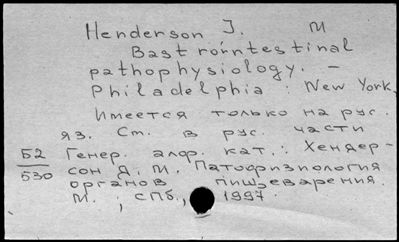 Henderson J. M
Bastrointestinal
pathophysiology. –
Philadelphia : New York,
Имеется только на рус.
яз. Ст. в рус. части
Б2 Генер. алф. кат.: Хендер-
530 сон Д. М. Патофизиология
органов пищеварения.
М. ; СПб., 1997